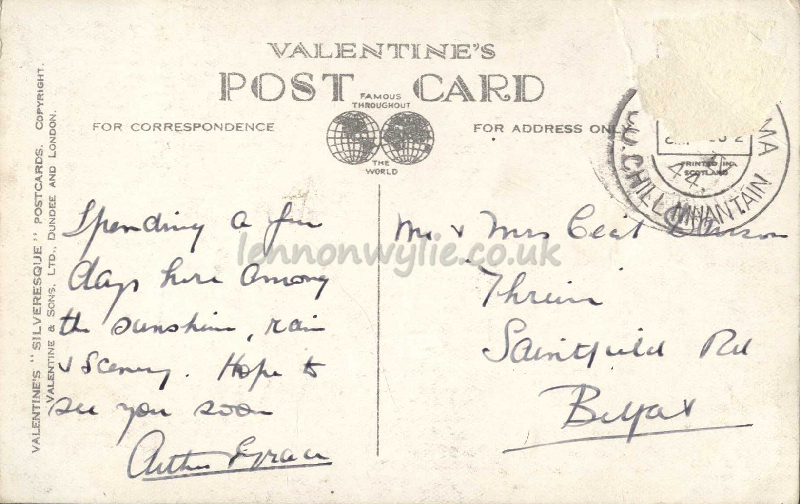 VALENTINE'S
POST CARD
FAMOUS
THROUGHOUT
THE
WORLD
FOR CORRESPONDENCE
FOR ADDRESS ONL
PRINTED IN
SCOTLAND
CHILL MHANTAIN
MA
44
VALENTINE'S "SILVERESQUE" POSTCARDS. COPYRIGHT.
VALENTINE & SONS, LTD., DUNDEE AND LONDON.
Spending a few
days here among
the sunshine, rain
& scenery. Hope to
see you soon
Arthur & Grace
Mr & Mrs Cecil
Saintfield Rd
Belfast
lennonwylie.co.uk